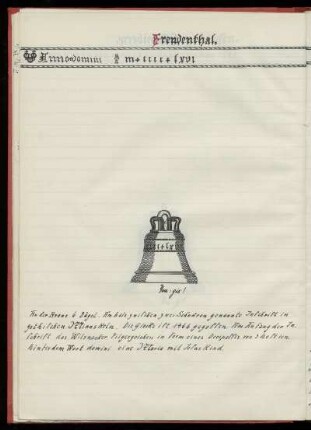 Freudenthal.
Anno domini m + cccc + lxvi
+cccc+lx
Um-pis!
An der Krone 6 Bügel. Am Hals zwischen zwei Schnüren genannte Inschrift in
gothischen Minuskeln. Die Glocke ist 1466 gegossen. Am Anfang der In-
schrift das Wilsnacker Pilgerzeichen in Form eines
hinter dem Wort domini eine Maria mit Jesus Kind.